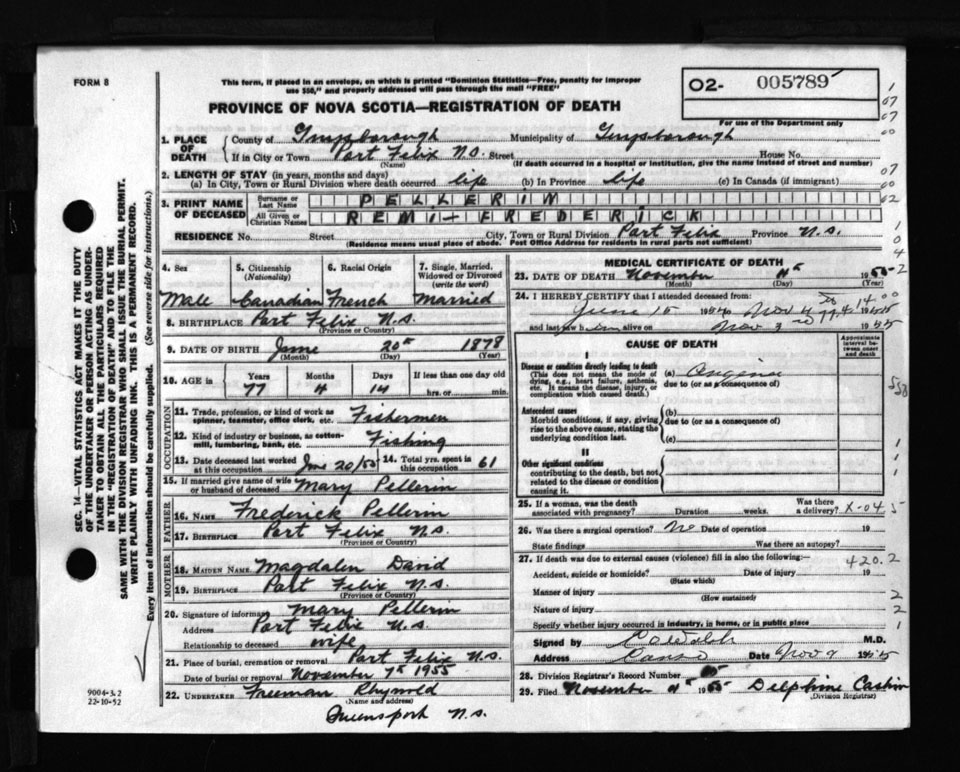 FORM 8
This form, if placed in an envelope, on which is printed "Dominion Statistics—Free, penalty for improper
use $50," and properly addressed will pass through the mail "FREE"
02- 005789
For use of the Department only
PROVINCE OF NOVA SCOTIA—REGISTRATION OF DEATH
1. PLACE OF DEATH
County of Guysborough Municipality of Guysborough
If in City or Town Port Felix N.S. Street House No.
(Name) (If death occurred in a hospital or institution, give the name instead of street and number)
2. LENGTH OF STAY (in years, months and days)
(a) In City, Town or Rural Division where death occurred life (b) In Province life (c) In Canada (if immigrant)
3. PRINT NAME OF DECEASED
Surname or Last Name PELLERIN
All Given or Christian Names REMI-FREDERICK
RESIDENCE No. Street City, Town or Rural Division Port Felix Province N.S.
(Residence means usual place of abode. Post Office Address for residents in rural parts not sufficient)
4. Sex 5. Citizenship (Nationality) 6. Racial Origin 7. Single, Married, Widowed or Divorced (write the word)
Male Canadian French Married
8. BIRTHPLACE Port Felix N.S.
(Province or Country)
9. DATE OF BIRTH June 20th 1878
(Month) (Day) (Year)
10. AGE in Years Months Days If less than one day old
77 4 14 hrs. or min.
OCCUPATION
11. Trade, profession, or kind of work as spinner, teamster, office clerk, etc. Fishermen
12. Kind of industry or business, as cotton-mill, lumbering, bank, etc. Fishing
13. Date deceased last worked at this occupation June 20/50 14. Total yrs. spent in this occupation 61
15. If married give name of wife or husband of deceased Mary Pellerin
FATHER
16. NAME Frederick Pellerin
17. BIRTHPLACE Port Felix N.S.
(Province or Country)
MOTHER
18. MAIDEN NAME Magdalen David
19. BIRTHPLACE Port Felix N.S.
(Province or Country)
20. Signature of informant Mary Pellerin
Address Port Felix N.S.
Relationship to deceased wife
21. Place of burial, cremation or removal Port Felix N.S.
Date of burial or removal November 7th 1955
22. UNDERTAKER Freeman Rhynold
(Name and address)
Queensport N.S.
MEDICAL CERTIFICATE OF DEATH
23. DATE OF DEATH November 4th 1955
(Month) (Day) (Year)
24. I HEREBY CERTIFY that I attended deceased from:
June 15 Nov 4 1955
and last saw him alive on Nov 3 1955
CAUSE OF DEATH
Approximate interval between onset and death
I
Disease or condition directly leading to death
(This does not mean the mode of dying, e.g., heart failure, asthenia, etc. It means the disease, injury, or complication which caused death.)
(a) Angina
due to (or as a consequence of)
Antecedent causes
Morbid conditions, if any, giving rise to the above cause, stating the underlying condition last.
(b)
due to (or as a consequence of)
(c)
II
Other significant conditions
contributing to the death, but not related to the disease or condition causing it.
25. If a woman, was the death associated with pregnancy? Duration weeks. Was there a delivery? X-045
26. Was there a surgical operation? No Date of operation 19
State findings Was there an autopsy?
27. If death was due to external causes (violence) fill in also the following:—
Accident, suicide or homicide? Date of injury 19
(State which)
420.2
Manner of injury
(How sustained)
Nature of injury
Specify whether injury occurred in industry, in home, or in public place
Signed by M.D.
Address Canso Date Nov 9 1955
28. Division Registrar's Record Number
29. Filed November 4th 1955 Delphine
(Division Registrar)
SEC. 14—VITAL STATISTICS ACT MAKES IT THE DUTY
OF THE UNDERTAKER OR PERSON ACTING AS UNDER-
TAKER TO OBTAIN ALL THE PARTICULARS REQUIRED
IN THE "REGISTRATION OF DEATH" AND TO FILE THE
SAME WITH THE DIVISION REGISTRAR WHO SHALL ISSUE THE BURIAL PERMIT.
WRITE PLAINLY WITH UNFADING INK. THIS IS A PERMANENT RECORD.
Every item of information should be carefully supplied. (See reverse side for instructions.)
9004-3.2
22-10-52